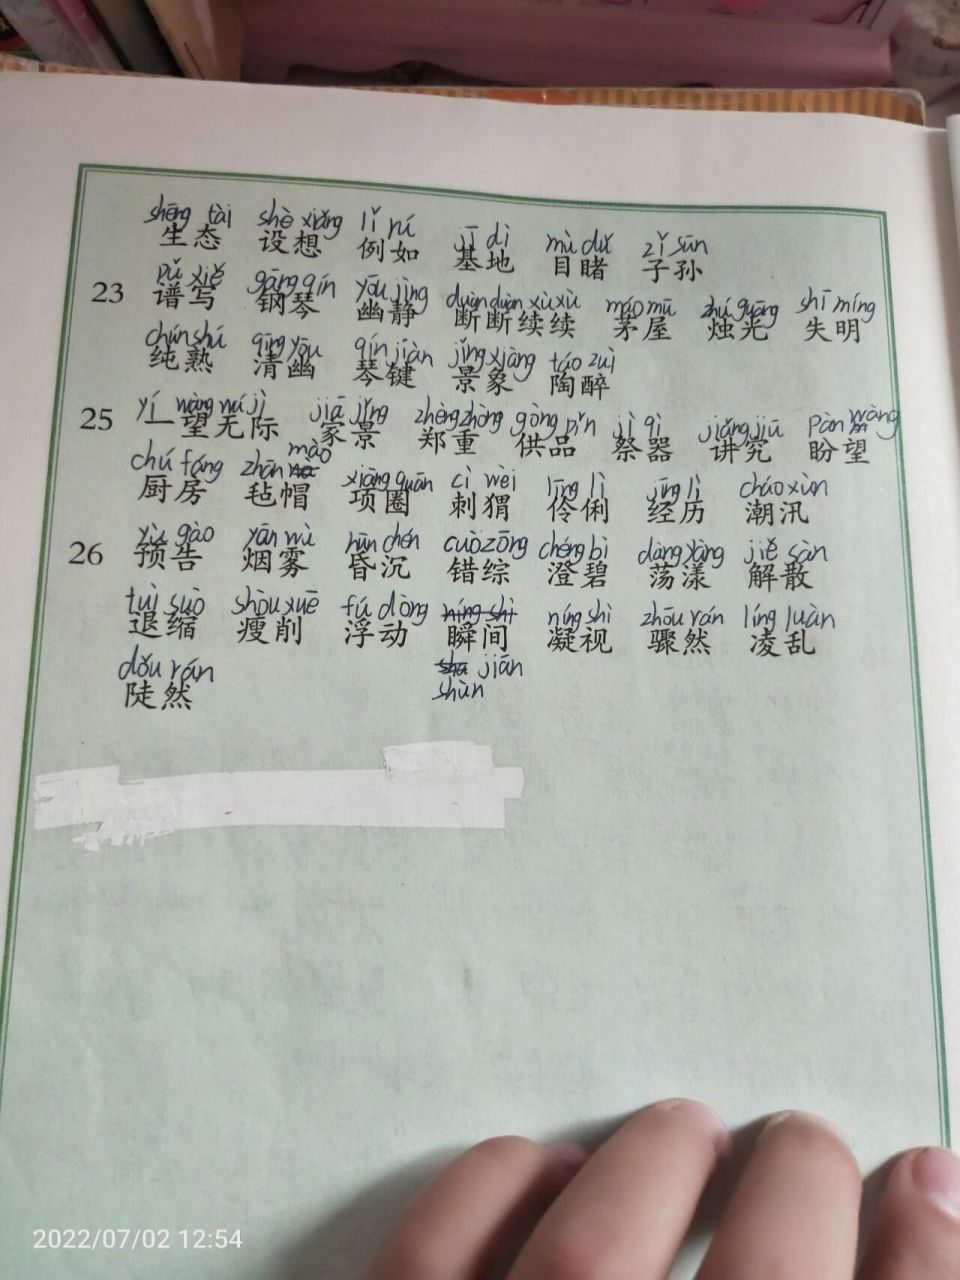 shēng tài shè xiǎng lǐ rú jī dì mù dǔ zǐ sūn
生态 设想 例如 基地 目睹 子孙
pǔ xiě gāng qín yōu jìng duàn duàn xù xù máo wū zhú guāng shī míng
23 谱写 钢琴 幽静 断断续续 茅屋 烛光 失明
chún shú qīng yōu qín jiàn jǐng xiàng táo zuì
纯熟 清幽 琴键 景象 陶醉
yí wàng wú jì jiā jǐng zhèng zhòng gòng pǐn jì qì jiǎng jiū pàn wàng
25 一望无际 家景 郑重 供品 祭器 讲究 盼望
chú fáng zhān mào xiàng quān cì wèi líng lì jīng lì cháo xùn
厨房 毡帽 项圈 刺猬 伶俐 经历 潮汛
yù gào yān wù hūn chén cuò zōng chéng bì dàng yàng jiě sàn
26 预告 烟雾 昏沉 错综 澄碧 荡漾 解散
tuì suō shòu xuē fú dòng níng shì níng shì zhōu rán líng luàn
退缩 瘦削 浮动 瞬间 凝视 骤然 凌乱
dǒu rán jiān
shùn
陡然
2022/07/02 12:54